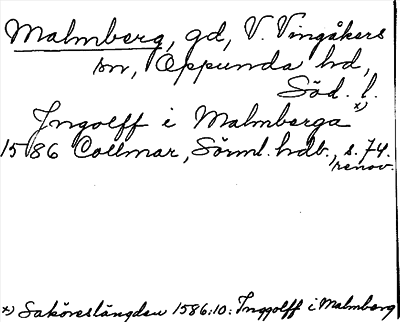 Malmberg, gd, V. Vingåkers
sn, Oppunda hd,
Söd. l.
Ingolff i Malmberga x)
1586 Collmar, Sörml. hdb., s. 74.
renov.
x) Saköreslängden 1586:10: Inggolff i Malmberg